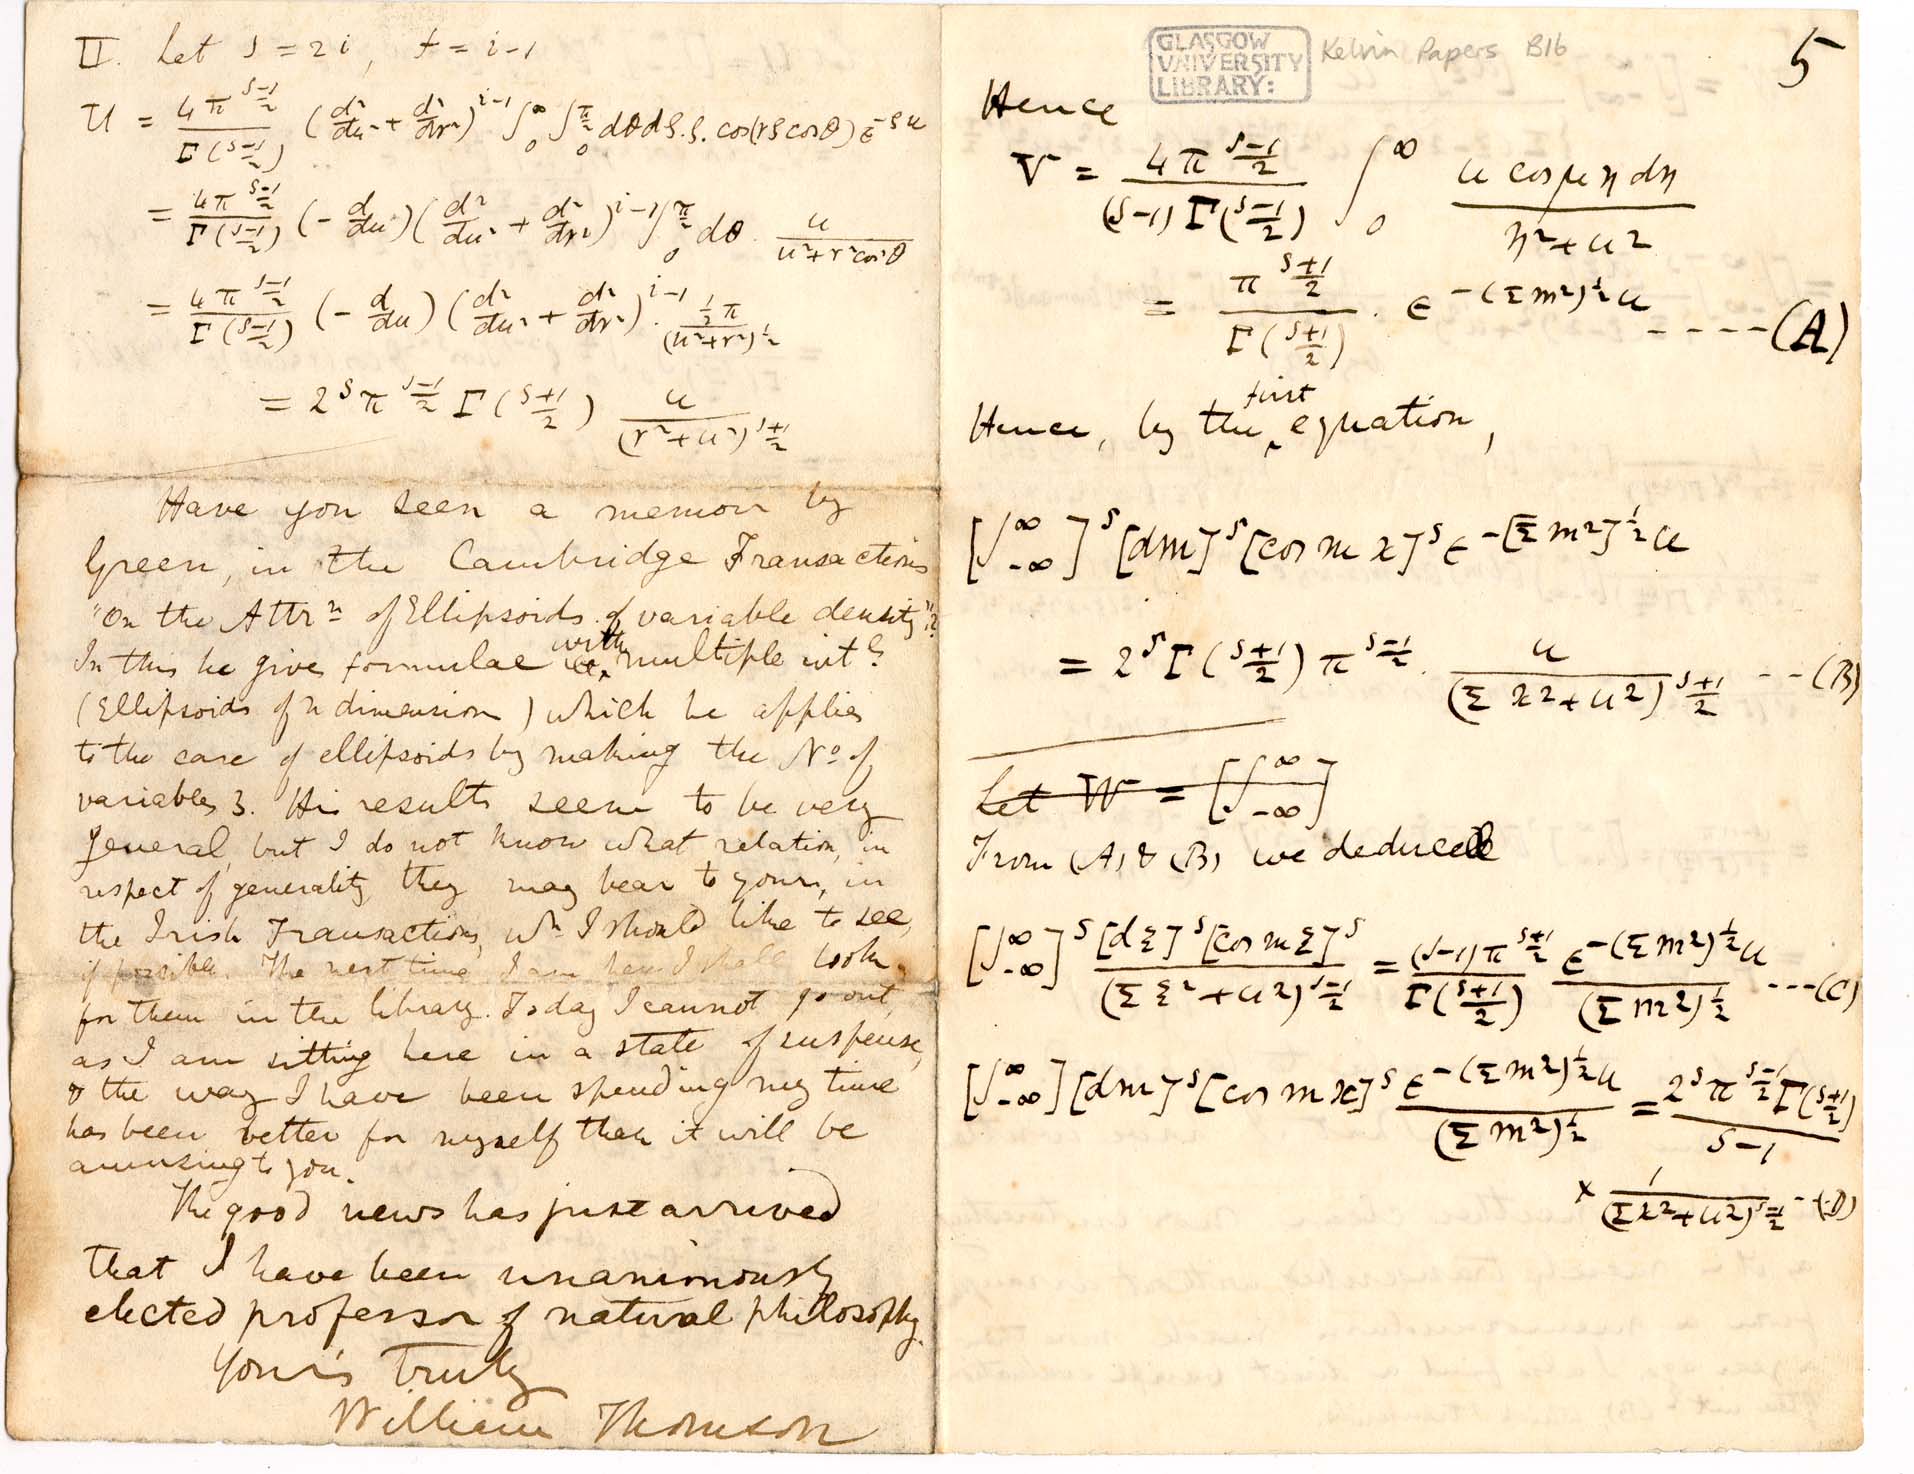 II. Let s = 2i, t = i-1
U = 4π^{(s-1)/2} / Γ((s-1)/2) (d²/du² + d²/dr²)^{i-1} ∫_0^∞ ∫_0^{π/2} dθ dρ. ρ. cos(rρ cosθ) ε^{-ρu}
= 4π^{(s-1)/2} / Γ((s-1)/2) (- d/du) (d²/du² + d²/dr²)^{i-1} ∫_0^{π/2} dθ. u / (u² + r² cos²θ)
= 4π^{(s-1)/2} / Γ((s-1)/2) (- d/du) (d²/du² + d²/dr²)^{i-1}. ½π / (u²+r²)^{½}
= 2^s π^{(s-1)/2} Γ((s+1)/2) u / (r²+u²)^{(s+1)/2}
Have you seen a memoir by
Green, in the Cambridge Transactions
"On the Attrⁿ of Ellipsoids of variable density"?
In this he give formulae with multiple intˢ
(Ellipsoids of n dimension) which he applies
to the case of ellipsoids by making the Nº of
variables 3. His results seem to be very
general, but I do not know what relation, in
respect of generality they may bear to yours, in
the Irish Transactions, wʰ I should like to see,
if possible. The next time I am here I shall look
for them in the library. Today I cannot go out,
as I am sitting here in a state of suspense,
& the way I have been spending my time
has been better for myself than it will be
amusing to you.
The good news has just arrived
that I have been unanimously
elected professor of natural philosophy.
Your's truly
William Thomson
GLASGOW
UNIVERSITY
LIBRARY:
Kelvin Papers B16
5
Hence
V = 4π^{(s-1)/2} / ((s-1) Γ((s-1)/2)) ∫_0^∞ u cos μη dη / (η²+u²)
= π^{(s+1)/2} / Γ((s+1)/2) . ε^{-(Σm²)^{½}u} ----- (A)
Hence, by the first equation,
[∫_{-∞}^∞]^s [dm]^s [cos m x]^s ε^{-[Σm²]^{½}u}
= 2^s Γ((s+1)/2) π^{(s-1)/2}. u / (Σx²+u²)^{(s+1)/2} --- (B)
Let W = [∫_{-∞}^∞]
From (A) & (B) we deduce
[∫_{-∞}^∞]^s [dξ]^s [cos mξ]^s / (Σξ²+u²)^{(s-1)/2} = (s-1)π^{(s+1)/2} / Γ((s+1)/2) ε^{-(Σm²)^{½}u} / (Σm²)^{½} --- (C)
[∫_{-∞}^∞] [dm]^s [cos mx]^s ε^{-(Σm²)^{½}u} / (Σm²)^{½} = 2^s π^{(s-1)/2} Γ((s+1)/2) / (s-1)
× 1 / (Σx²+u²)^{(s-1)/2} -- (D)